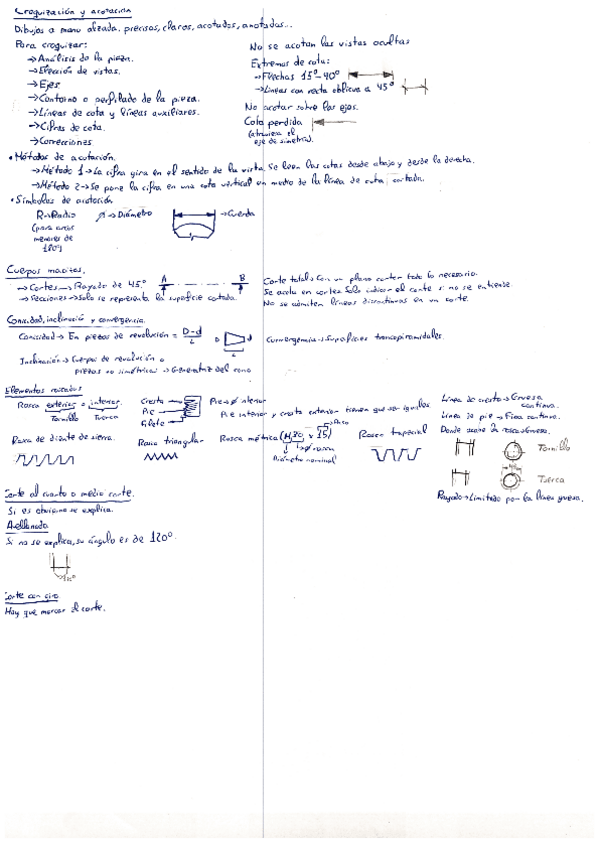 Croquización y acotación
Dibujos a mano alzada, precisos, claros, acotados, anotados...
Para croquizar:
→Análisis de la pieza.
→Elección de vistas.
→Ejes
→Contorno o perfilado de la pieza.
→Líneas de cota y líneas auxiliares.
→Cifras de cota.
→Correcciones
No se acotan las vistas ocultas
Extremos de cota:
→Flechas 15º-40º
→Líneas con recta oblicua a 45º
No acotar sobre los ejes.
Cota perdida
(atraviesa el
eje de simetría).
• Métodos de acotación.
→Método 1→La cifra gira en el sentido de la vista. Se leen las cotas desde abajo y desde la derecha.
→Método 2→Se pone la cifra en una cota vertical en medio de la línea de cota cortada.
• Símbolos de acotación
R→Radio
(para arcos
menores de
180º)
ø→Diámetro
→Cuerda
Cuerpos macizos.
→Cortes→Rayado de 45º
→Secciones→Solo se representa la superficie cortada.
A B
Corte total→Con un plano cortar todo lo necesario.
Se acota en cortes. Solo indicar el corte si no se entiende
No se admiten líneas discontinuas en un corte.
Conicidad, inclinación y convergencia.
Conicidad→ En piezas de revolución = D-d
L
D d
L
Convergencia→Superficies troncopiramidales.
Inclinación→Cuerpos de revolución o
piezas no simétricas→Generatriz del cono
Elementos roscados
Rosca exterior o interior.
Tornillo Tuerca
Cresta
Pie
Filete
Pie→ø interior
Pie interior y cresta exterior tienen que ser iguales.
Línea de cresta→Gruesa
continua.
Línea de pie→Fina continua.
Rosca de diente de sierra.
Rosca triangular
Rosca métrica (M30 x 15)
→Paso
→ø rosca
Diámetro nominal
Rosca trapecial
Tornillo
Tuerca
Rayado→Limitado por la línea gruesa.
Corte al cuarto o medio corte.
Si es obvio no se explica.
Avellanado
Si no se explica, su ángulo es de 120º.
120º
Corte con giro
Hay que marcar el corte.